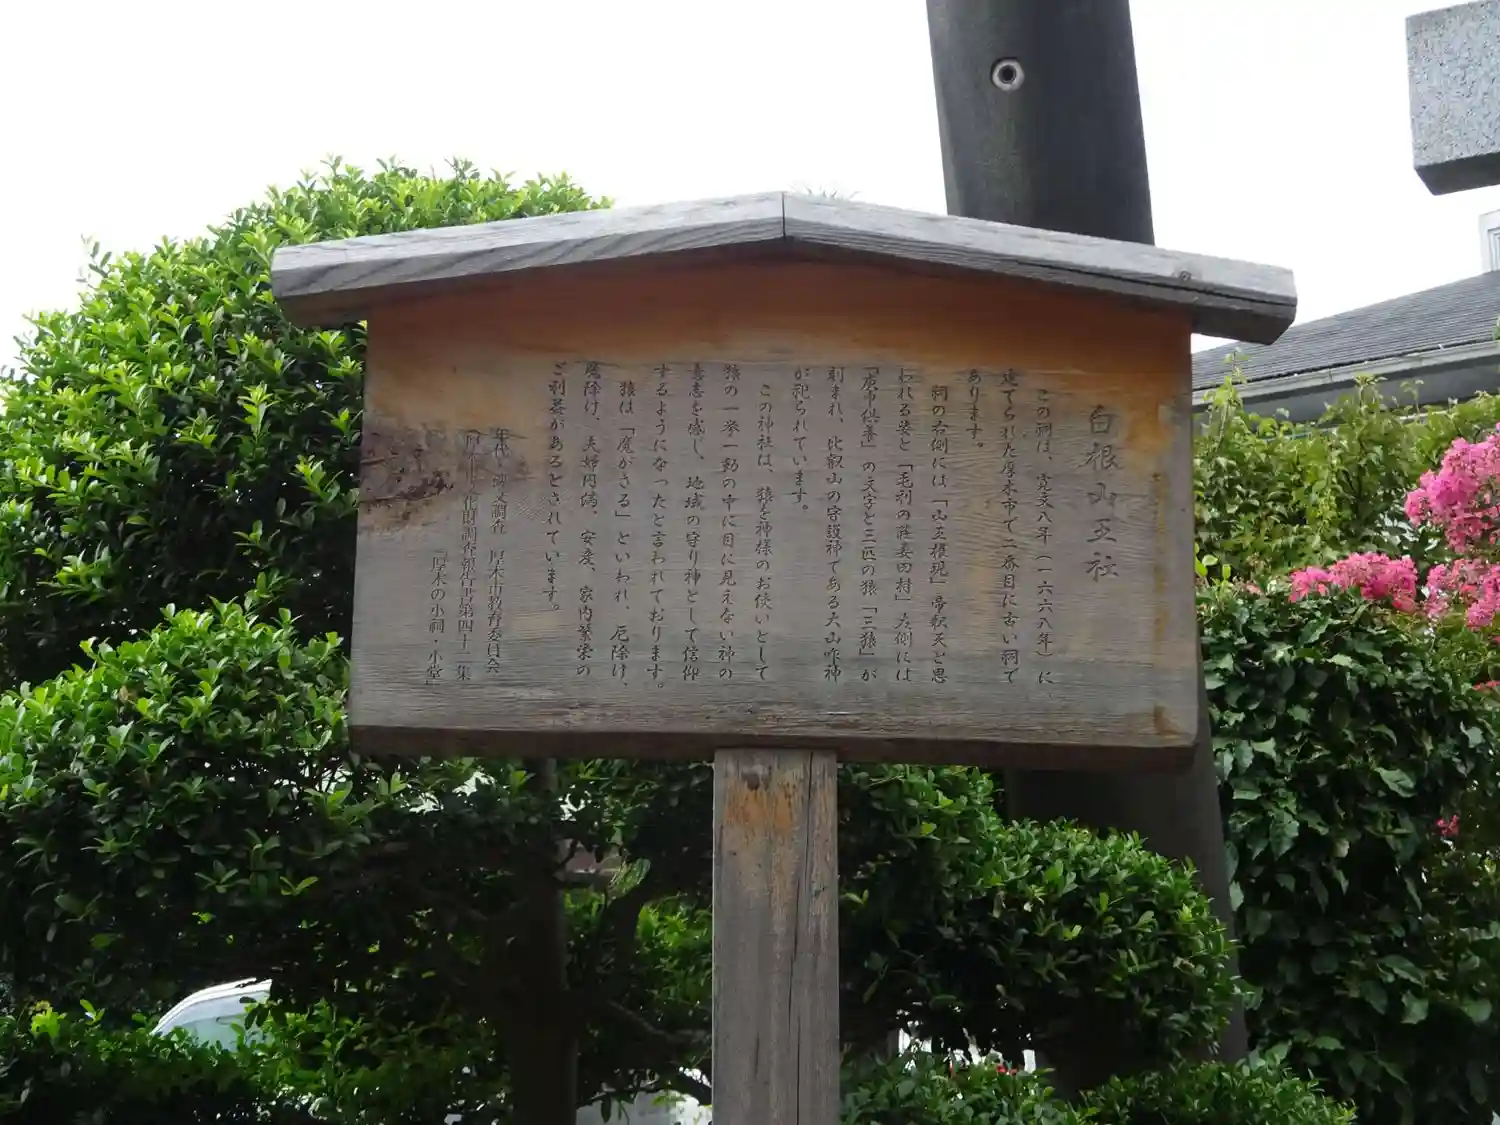 白根山王社
この祠は、寛文八年(一六六八年)に、
建てられた厚木市で二番目に古い祠で
あります。
祠の右側には「山王権現」帝釈天と思
われる姿と「毛利の荘妻田村」左側には
「庚申供養」の文字と三匹の猿「三猿」が
刻まれ、比叡山の守護神である大山咋神
が祀られています。
この神社は、猿を神様のお使いとして
猿の一挙一動の中に目に見えない神の
意志を感じ、地域の守り神として信仰
するようになったと言われております。
猿は「魔がさる」といわれ、厄除け、
魔除け、夫婦円満、安産、家内繁栄の
ご利益があるとされています。
年代・碑文調査 厚木市教育委員会
厚木市文化財調査報告書第四十一集
「厚木の小祠・小堂」